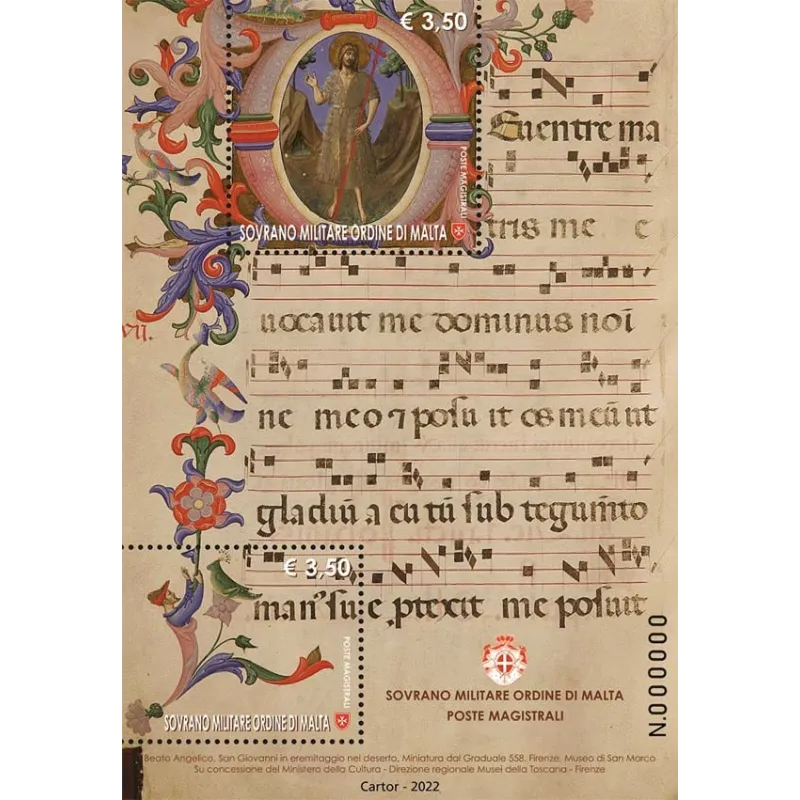 € 3,50
Euentre ma
POSTE MAGISTRALI
SOVRANO MILITARE ORDINE DI MALTA
tris me e
uocauit me dominus noi
vii.
ne meo ⁊ posu it os meū ut
gladiū a cu tū sub tegumīto
€ 3,50
man' su e ptexit me posuit
POSTE MAGISTRALI
SOVRANO MILITARE ORDINE DI MALTA
SOVRANO MILITARE ORDINE DI MALTA
POSTE MAGISTRALI
N.000000
Beato Angelico, San Giovanni in eremitaggio nel deserto, Miniatura dal Graduale 558, Firenze, Museo di San Marco
Su concessione del Ministero della Cultura - Direzione regionale Musei della Toscana - Firenze
Cartor - 2022